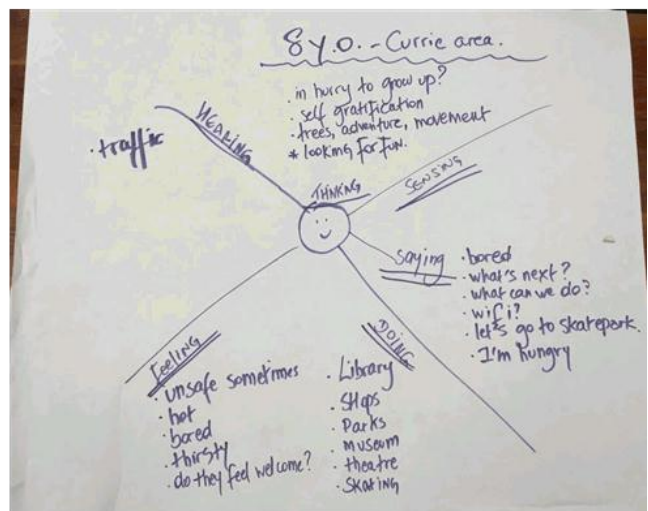 8 Y.O. - Currie area.
· in hurry to grow up?
· self gratification
· trees, adventure, movement
* looking for fun.
THINKING
HEARING
· traffic
SENSING
Saying
· bored
· what's next?
· what can we do?
· wifi?
· let's go to skatepark.
· I'm hungry
Feeling
· unsafe sometimes
· hot
· bored
· thirsty
· do they feel welcome?
DOING
· Library
· SHops
· Parks
· museum
· theatre
· SKATING